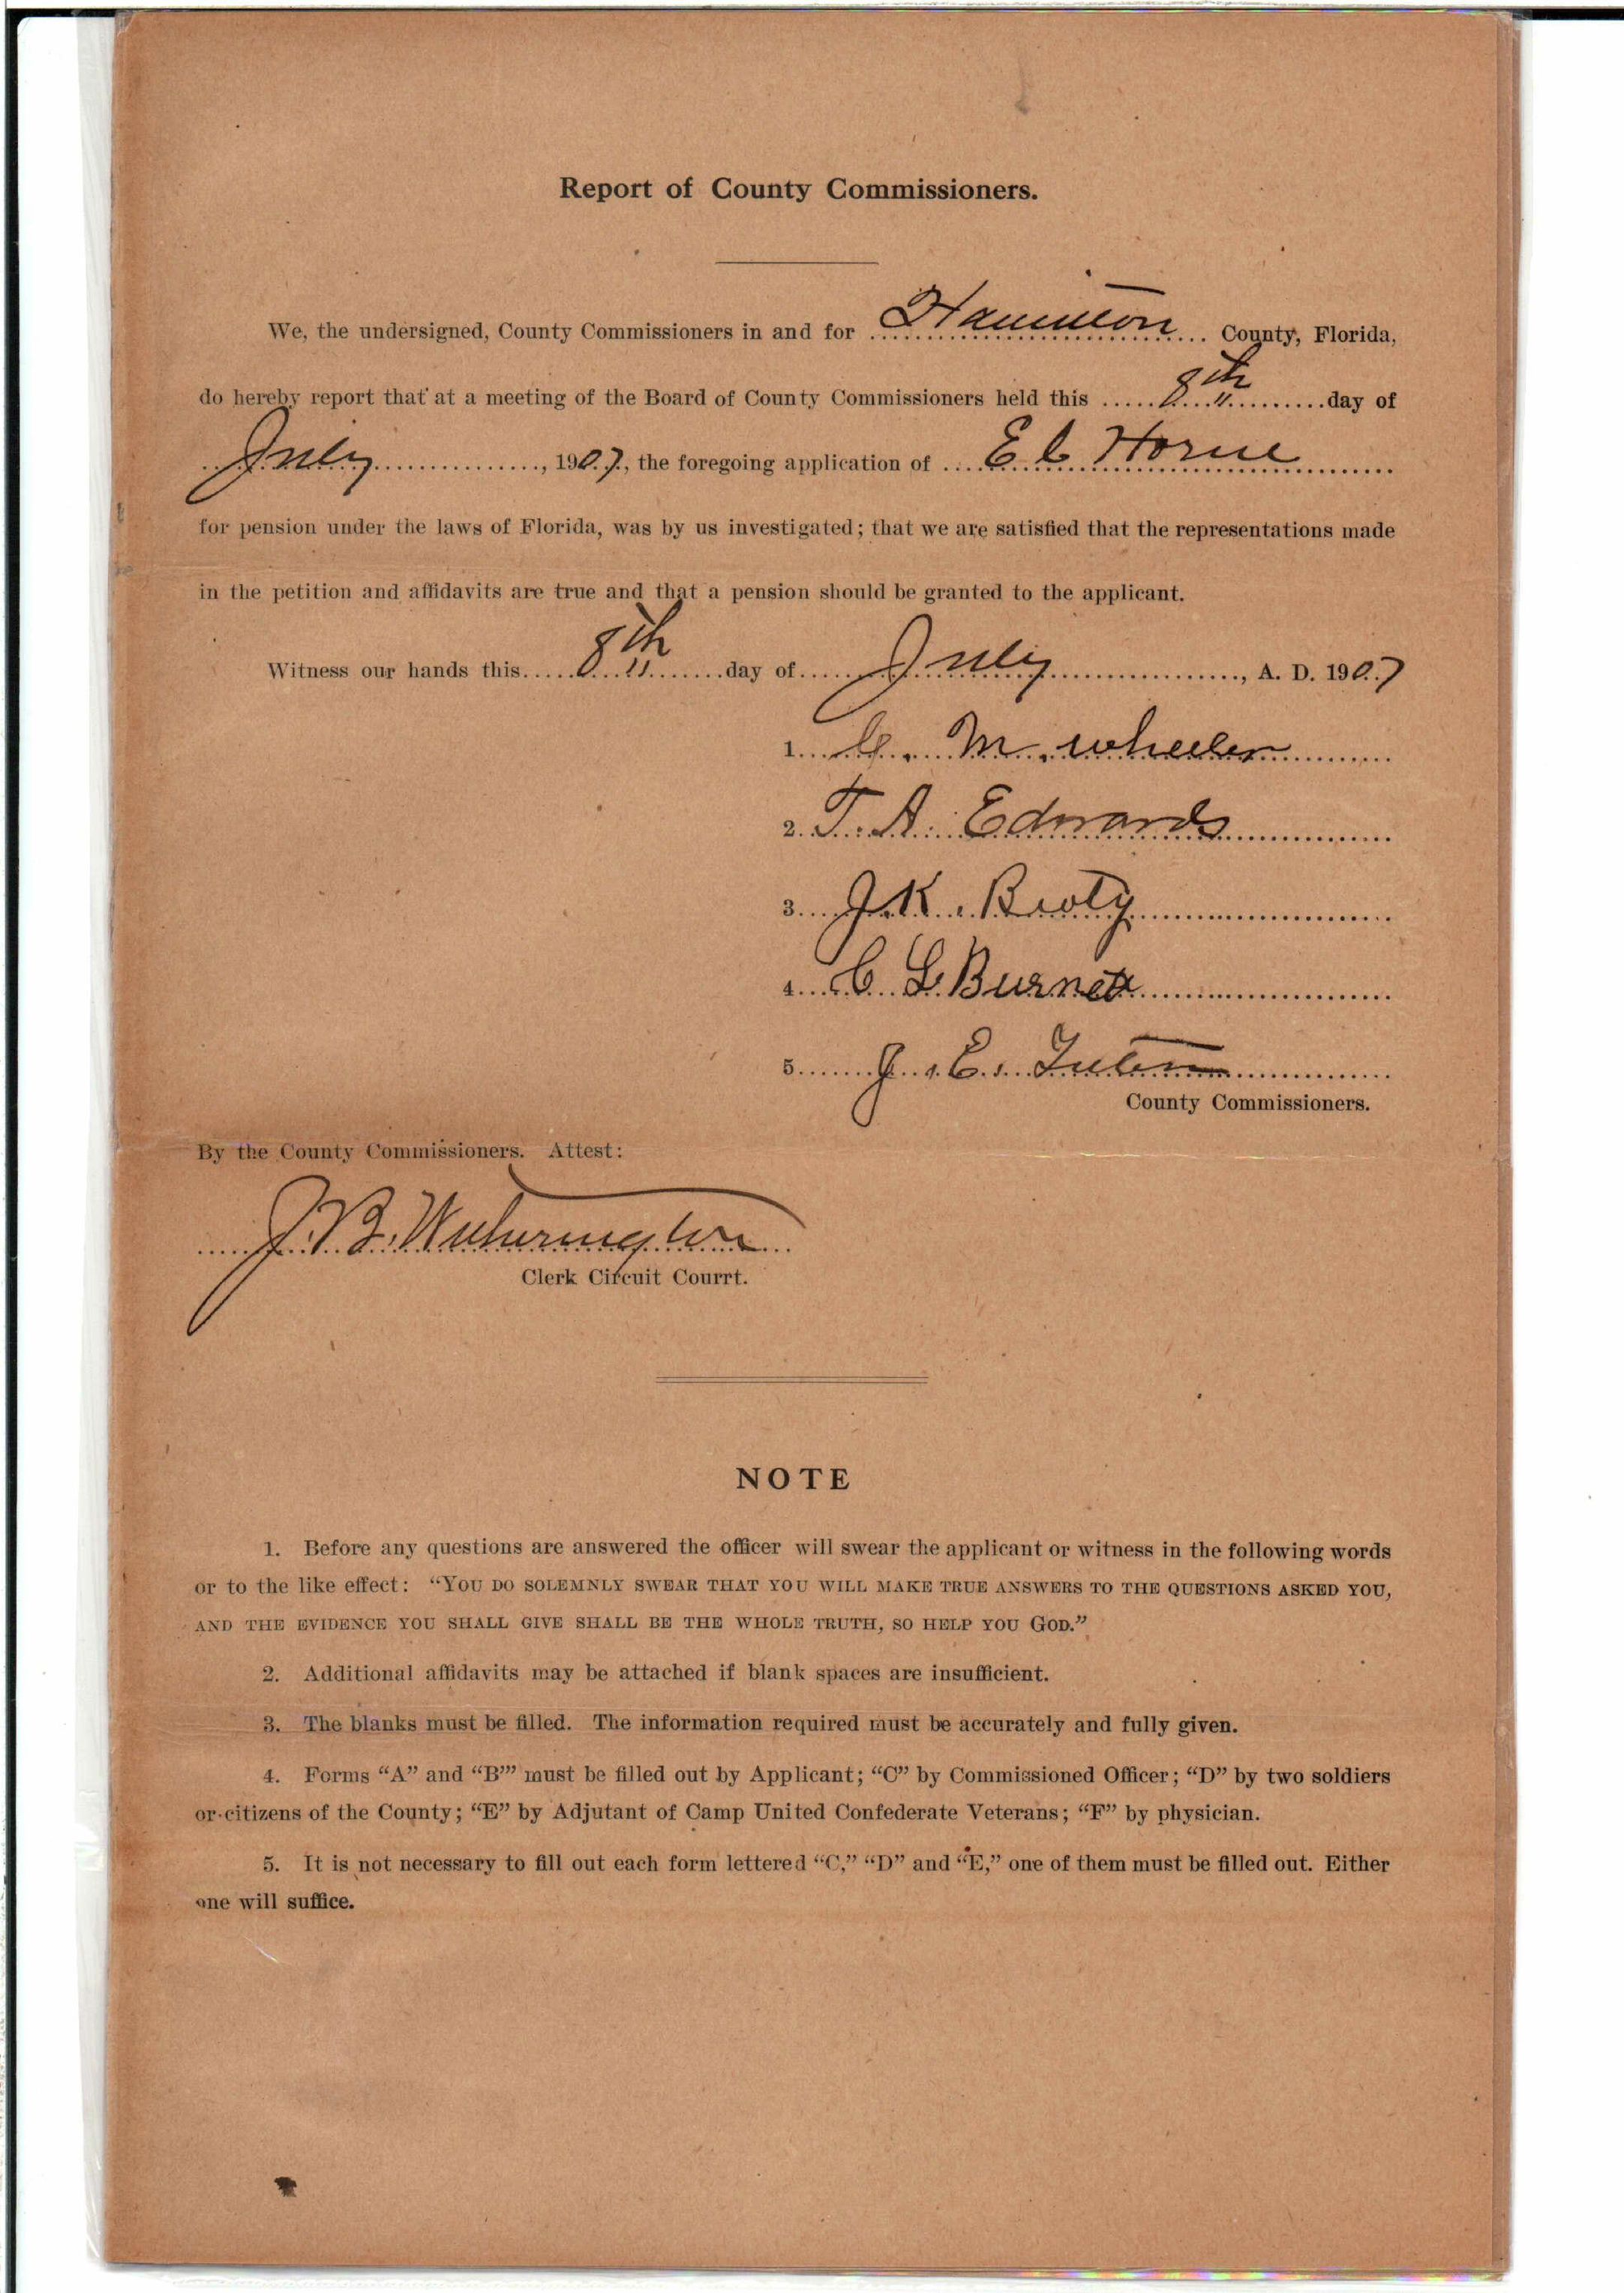 Report of County Commissioners.
We, the undersigned, County Commissioners in and for Hamilton County, Florida,
do hereby report that at a meeting of the Board of County Commissioners held this 8th day of
July, 1907, the foregoing application of E C Horne
for pension under the laws of Florida, was by us investigated; that we are satisfied that the representations made
in the petition and affidavits are true and that a pension should be granted to the applicant.
Witness our hands this 8th day of July, A. D. 1907
1. M. Wheeler
2. T. A. Edwards
3. J. K.
4. C L Burnett
5. J. E.
County Commissioners.
By the County Commissioners. Attest:
J. B. Wetherington
Clerk Circuit Courrt.
NOTE
1. Before any questions are answered the officer will swear the applicant or witness in the following words
or to the like effect: “YOU DO SOLEMNLY SWEAR THAT YOU WILL MAKE TRUE ANSWERS TO THE QUESTIONS ASKED YOU,
AND THE EVIDENCE YOU SHALL GIVE SHALL BE THE WHOLE TRUTH, SO HELP YOU GOD.”
2. Additional affidavits may be attached if blank spaces are insufficient.
3. The blanks must be filled. The information required must be accurately and fully given.
4. Forms “A” and “B’” must be filled out by Applicant; “C” by Commissioned Officer; “D” by two soldiers
or citizens of the County; “E” by Adjutant of Camp United Confederate Veterans; “F” by physician.
5. It is not necessary to fill out each form lettered “C,” “D” and “E,” one of them must be filled out. Either
one will suffice.